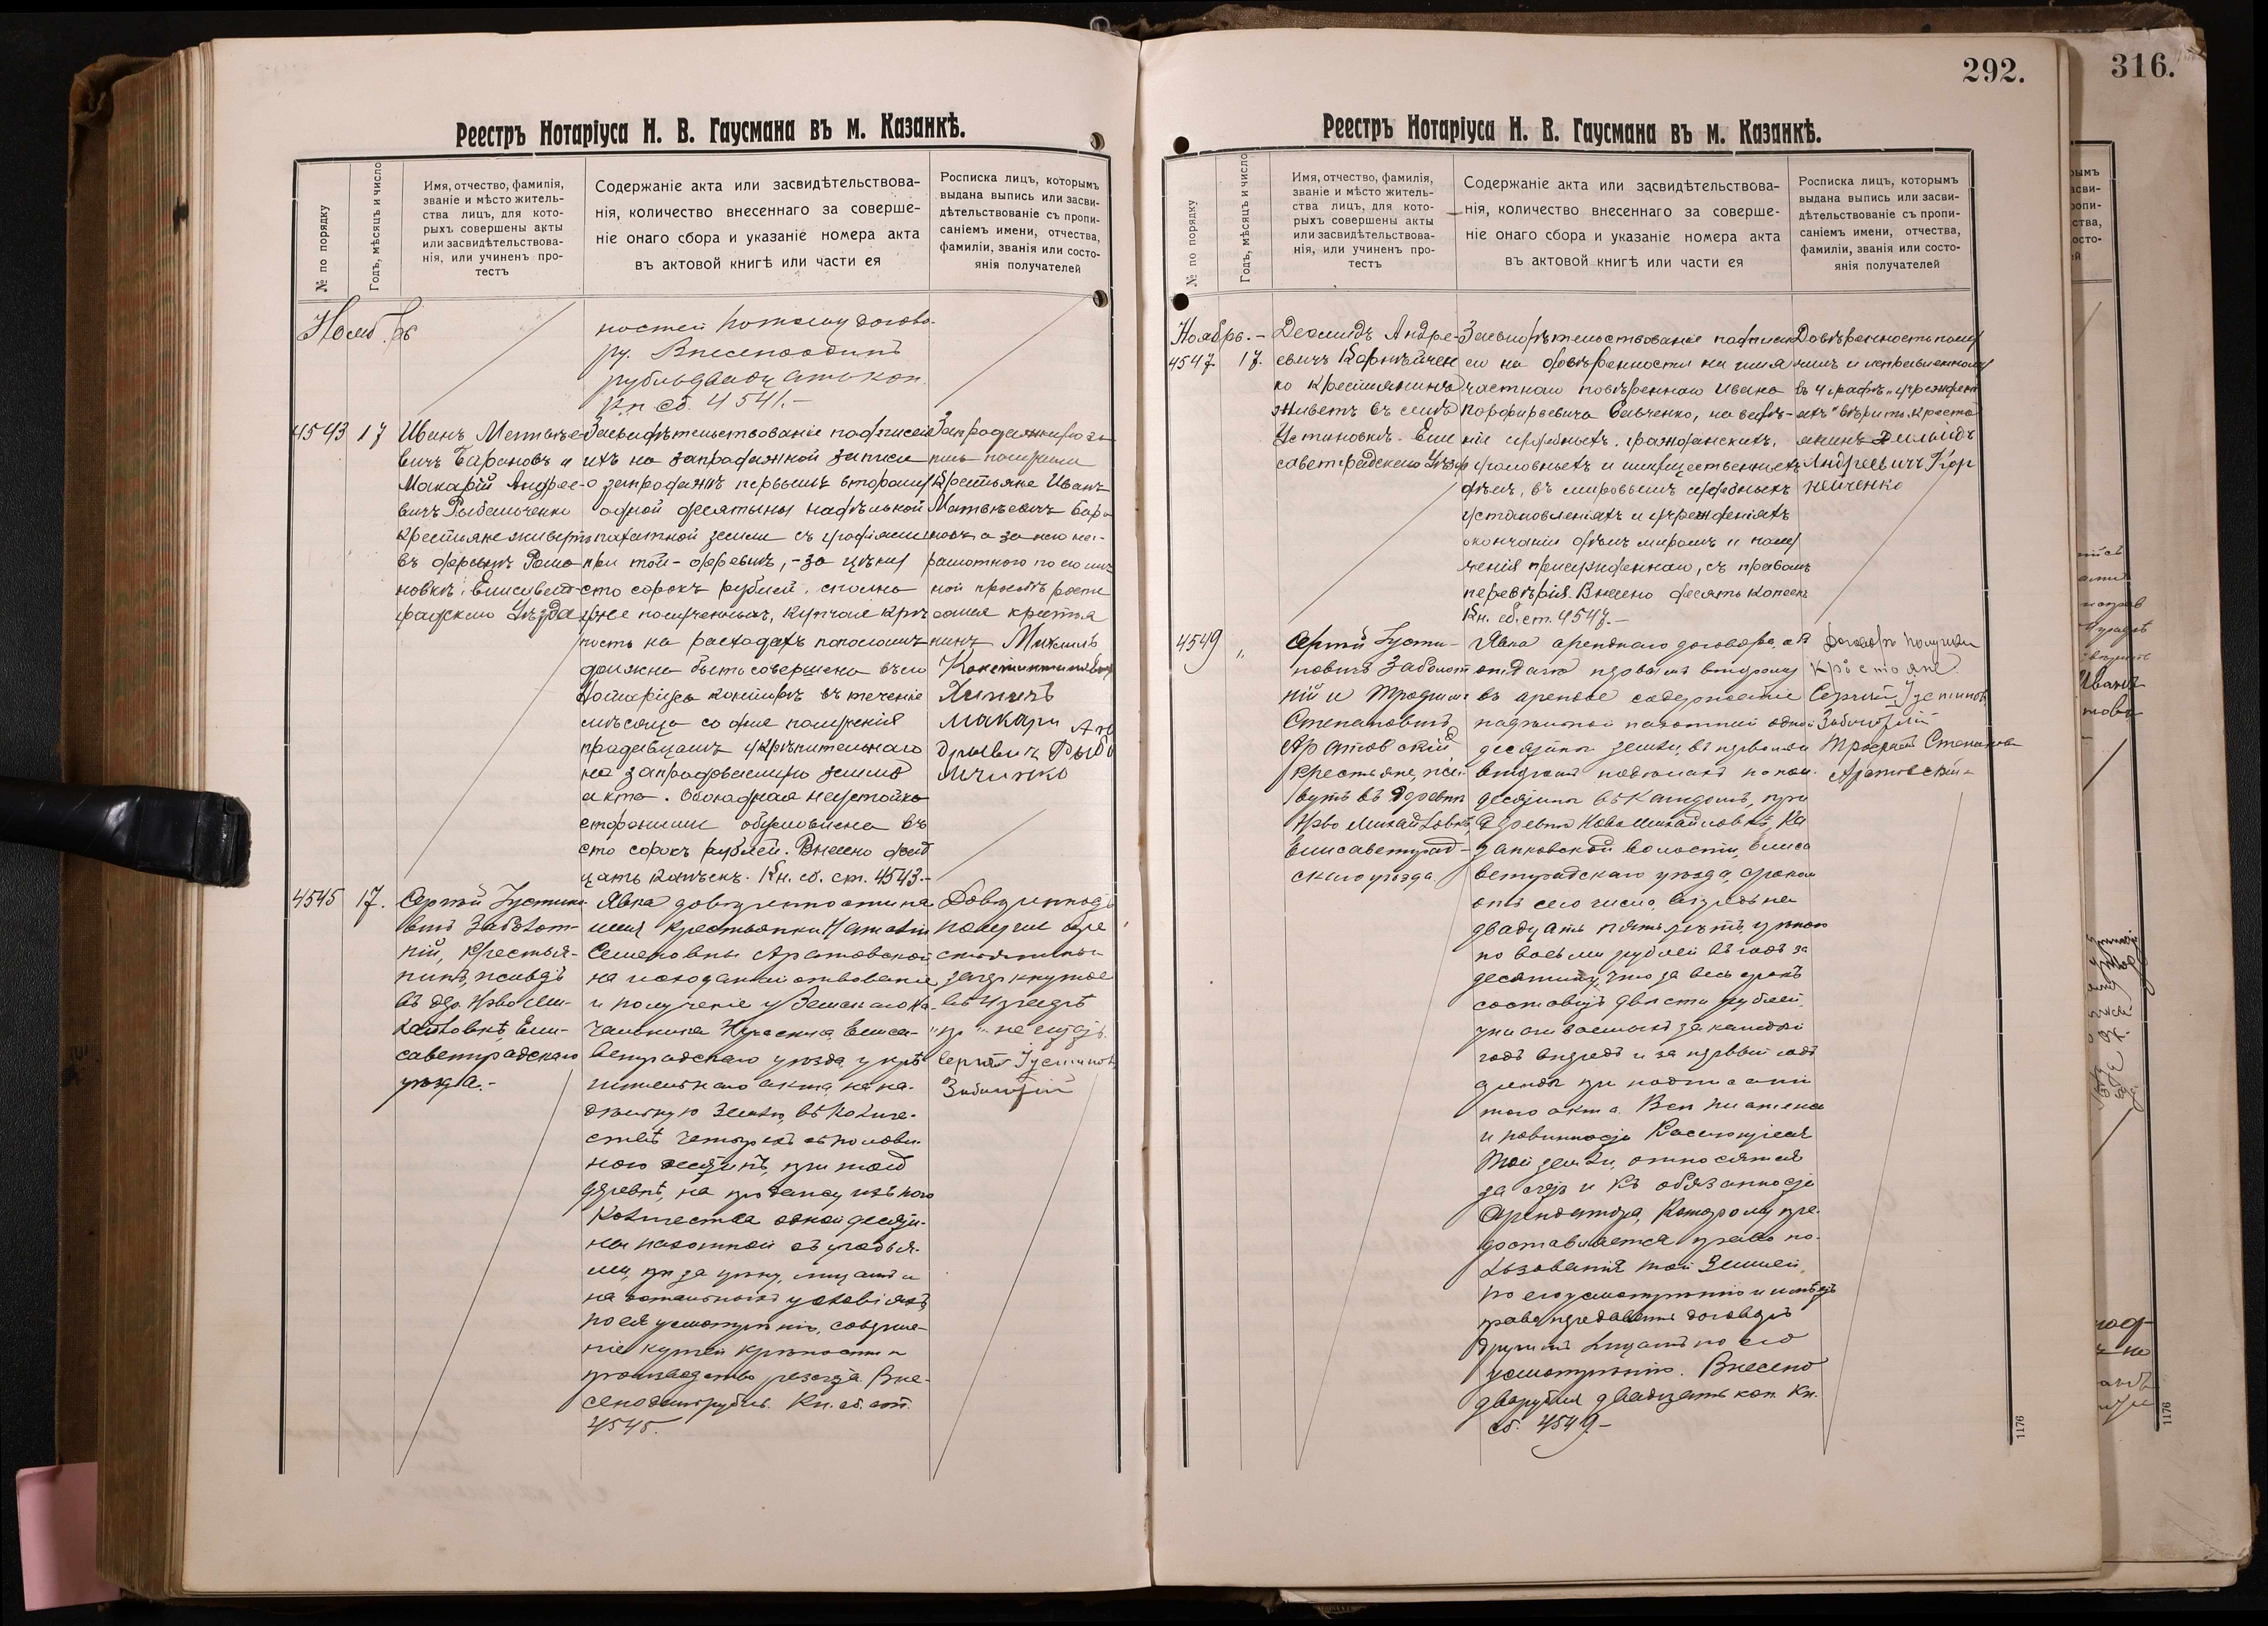 292.
316.
Реестръ Нотаріуса Н. В. Гаусмана въ м. Казанкѣ.
№ по порядку
Годъ, мѣсяцъ и число
Имя, отчество, фамилія,
званіе и мѣсто житель-
ства лицъ, для кото-
рыхъ совершены акты
или засвидѣтельствова-
нія, или учиненъ про-
тестъ
Содержаніе акта или засвидѣтельствова-
нія, количество внесеннаго за соверше-
ніе онаго сбора и указаніе номера акта
въ актовой книгѣ или части ея
Росписка лицъ, которымъ
выдана выпись или засви-
дѣтельствованіе съ пропи-
саніемъ имени, отчества,
фамиліи, званія или состо-
янія получателей
Ноябрь
ностей по тому догово-
ру. Внесено одинъ
рубль двадцать коп.
Кн. сб. 4541.-
4543 17
Иванъ Матвѣе-
вичъ Барановъ и
Макарій Андрее-
вичъ Рыбальченко
крестьяне живутъ
въ деревнѣ Рома-
новкѣ, Елисавет-
градскаго Уѣзда
Засвидѣтельствованіе подписей
ихъ на запродажной записи
о запродажѣ первымъ второму
одной десятины надѣльной
пахатной земли съ угодіями
при той-деревнѣ, - за цѣну
сто сорокъ рублей, сполна
уже полученныхъ, купчая крѣ
пость на расходахъ пополамъ
должна быть совершена въ сей
Нотаріуса конторѣ въ теченіе
мѣсяца со дня полученія
продавцомъ укрѣпительнаго
на запродаваемую землю
акта. Обоюдная неустойка
сторонами обусловлена въ
сто сорокъ рублей. Внесено двад
цать копѣекъ. Кн. сб. ст. 4543.-
Запродажную за
пись получили
Крестьяне Иванъ
Матвѣевичъ Бара
новъ а за него не-
грамотнаго по его лич
ной просьбѣ роспи
сался крестья
нинъ Михаилъ
Макари Ан
дреевич Рыба
льченко
4545 17.
Сергѣй Густино-
вичъ Заболот-
ній, крестья-
нинъ, живетъ
въ дер. Ново Ми-
хайловкѣ, Ели-
саветградскаго
уѣзда.-
Явка довѣренности на
имя крестьянки Наталіи
Семеновны Аратовской
на исходатайствованіе
и полученіе у Земскаго На-
чальника Участка, Елиса-
ветградскаго уѣзда, укрѣ-
пительнаго акта, на на-
дѣльную землю, въ количе-
ствѣ четырехъ съ полови-
ною десятинъ, при той
деревнѣ, на продажу изъ того
количества одной десяти-
ны пахотной съ угодья-
ми, за цѣну, лицамъ и
на остальныхъ условіяхъ
по ея усмотрѣнію, соверше-
ніе купчей крѣпости и
производство расчета. Вне-
сено одинъ рубль. Кн. сб. ст.
4545.
Довѣренность
получилъ кре
стьянинъ
зачеркнутое
не считать.
Сергѣй Густинов.
Заболотній
Реестръ Нотаріуса Н. В. Гаусмана въ м. Казанкѣ.
№ по порядку
Годъ, мѣсяцъ и число
Имя, отчество, фамилія,
званіе и мѣсто житель-
ства лицъ, для кото-
рыхъ совершены акты
или засвидѣтельствова-
нія, или учиненъ про-
тестъ
Содержаніе акта или засвидѣтельствова-
нія, количество внесеннаго за соверше-
ніе онаго сбора и указаніе номера акта
въ актовой книгѣ или части ея
Росписка лицъ, которымъ
выдана выпись или засви-
дѣтельствованіе съ пропи-
саніемъ имени, отчества,
фамиліи, званія или состо-
янія получателей
Ноябрь.-
4547 17.
Деомидъ Андре-
евичъ Корнѣйчен
ко крестьянинъ
живетъ въ селѣ
Устиновкѣ. Ели
саветградскаго Уѣзд
Засвидѣтельствованіе подписи
его на довѣренности на имя
частнаго повѣреннаго Ивана
Порфирьевича Савченко, на веде-
ніе судебныхъ, гражданскихъ,
уголовныхъ и имущественныхъ
дѣлъ, въ мировыхъ судебныхъ
установленіяхъ и учрежденіяхъ
окончаніи дѣлъ миромъ и полу
ченія присужденнаго, съ правомъ
перевѣрія. Внесено десять копеекъ
Кн. сб. ст. 4547.-
Довѣренность полу
чилъ и исправленному
въ 4 графѣ "учрежден
іяхъ" вѣрить. Кресть
янинъ Деомидъ
Андреевич Кор
нейченко
4549 "
Сергѣй Густи-
новичъ Заболот
ній и Трофимъ
Степановичъ
Аратовскій
крестьяне, жи-
вутъ въ деревнѣ
Ново Михайловкѣ,
Елисаветград-
скаго уѣзда
Явка аренднаго договора
отдачѣ первымъ второму
въ арендное содержаніе
надѣльной пахотной одной
десятины земли, въ первомъ и
второмъ по пол-
десятины въ каждомъ, при
деревнѣ Ново Михайловкѣ, Ка
занковской волости, Елиса
ветградскаго уѣзда, срокомъ
отъ сего числа, впредь на
двадцать пять лѣтъ, цѣною
по восьми рублей въ годъ за
десятину, что за весь срокъ
составитъ двѣсти рублей,
уплачиваемыхъ за каждый
годъ впередъ и за первый годъ
при подписаніи
того акта. Всѣ платежи
и повинности касающіеся
той земли, относятся
къ обязанности
арендатора, которому пре-
доставляется право по-
льзованія той землей,
по его усмотрѣнію и имѣетъ
право передавать договоръ
другимъ лицамъ по его
усмотрѣнію. Внесено
два рубля двадцать коп. Кн.
сб. 4549.-
Договоръ получили
крестьяне
Сергѣй Густинов.
Заболотній
Трофимъ Степанов
Аратовскій
1176
1176